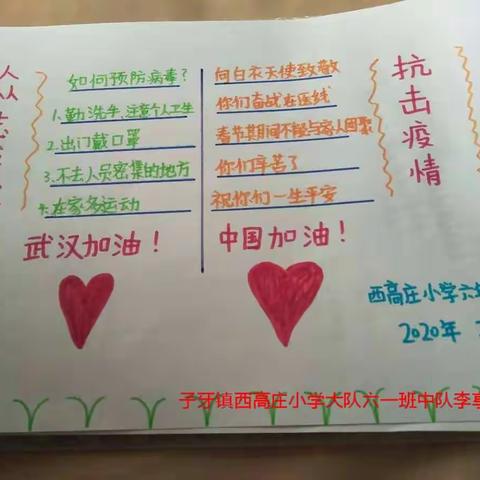 如何预防病毒?
1.勤洗手,注意个人卫生
2.出门戴口罩
3.不去人员密集的地方
4.在家多运动
武汉加油!
向白衣天使致敬
你们奋战在医线
春节其间不能与家人团聚
你们辛苦了
祝你们一生平安
中国加油!
抗击疫情
西高庄小学六
2020年
子牙镇西高庄小学大队六一班中队李